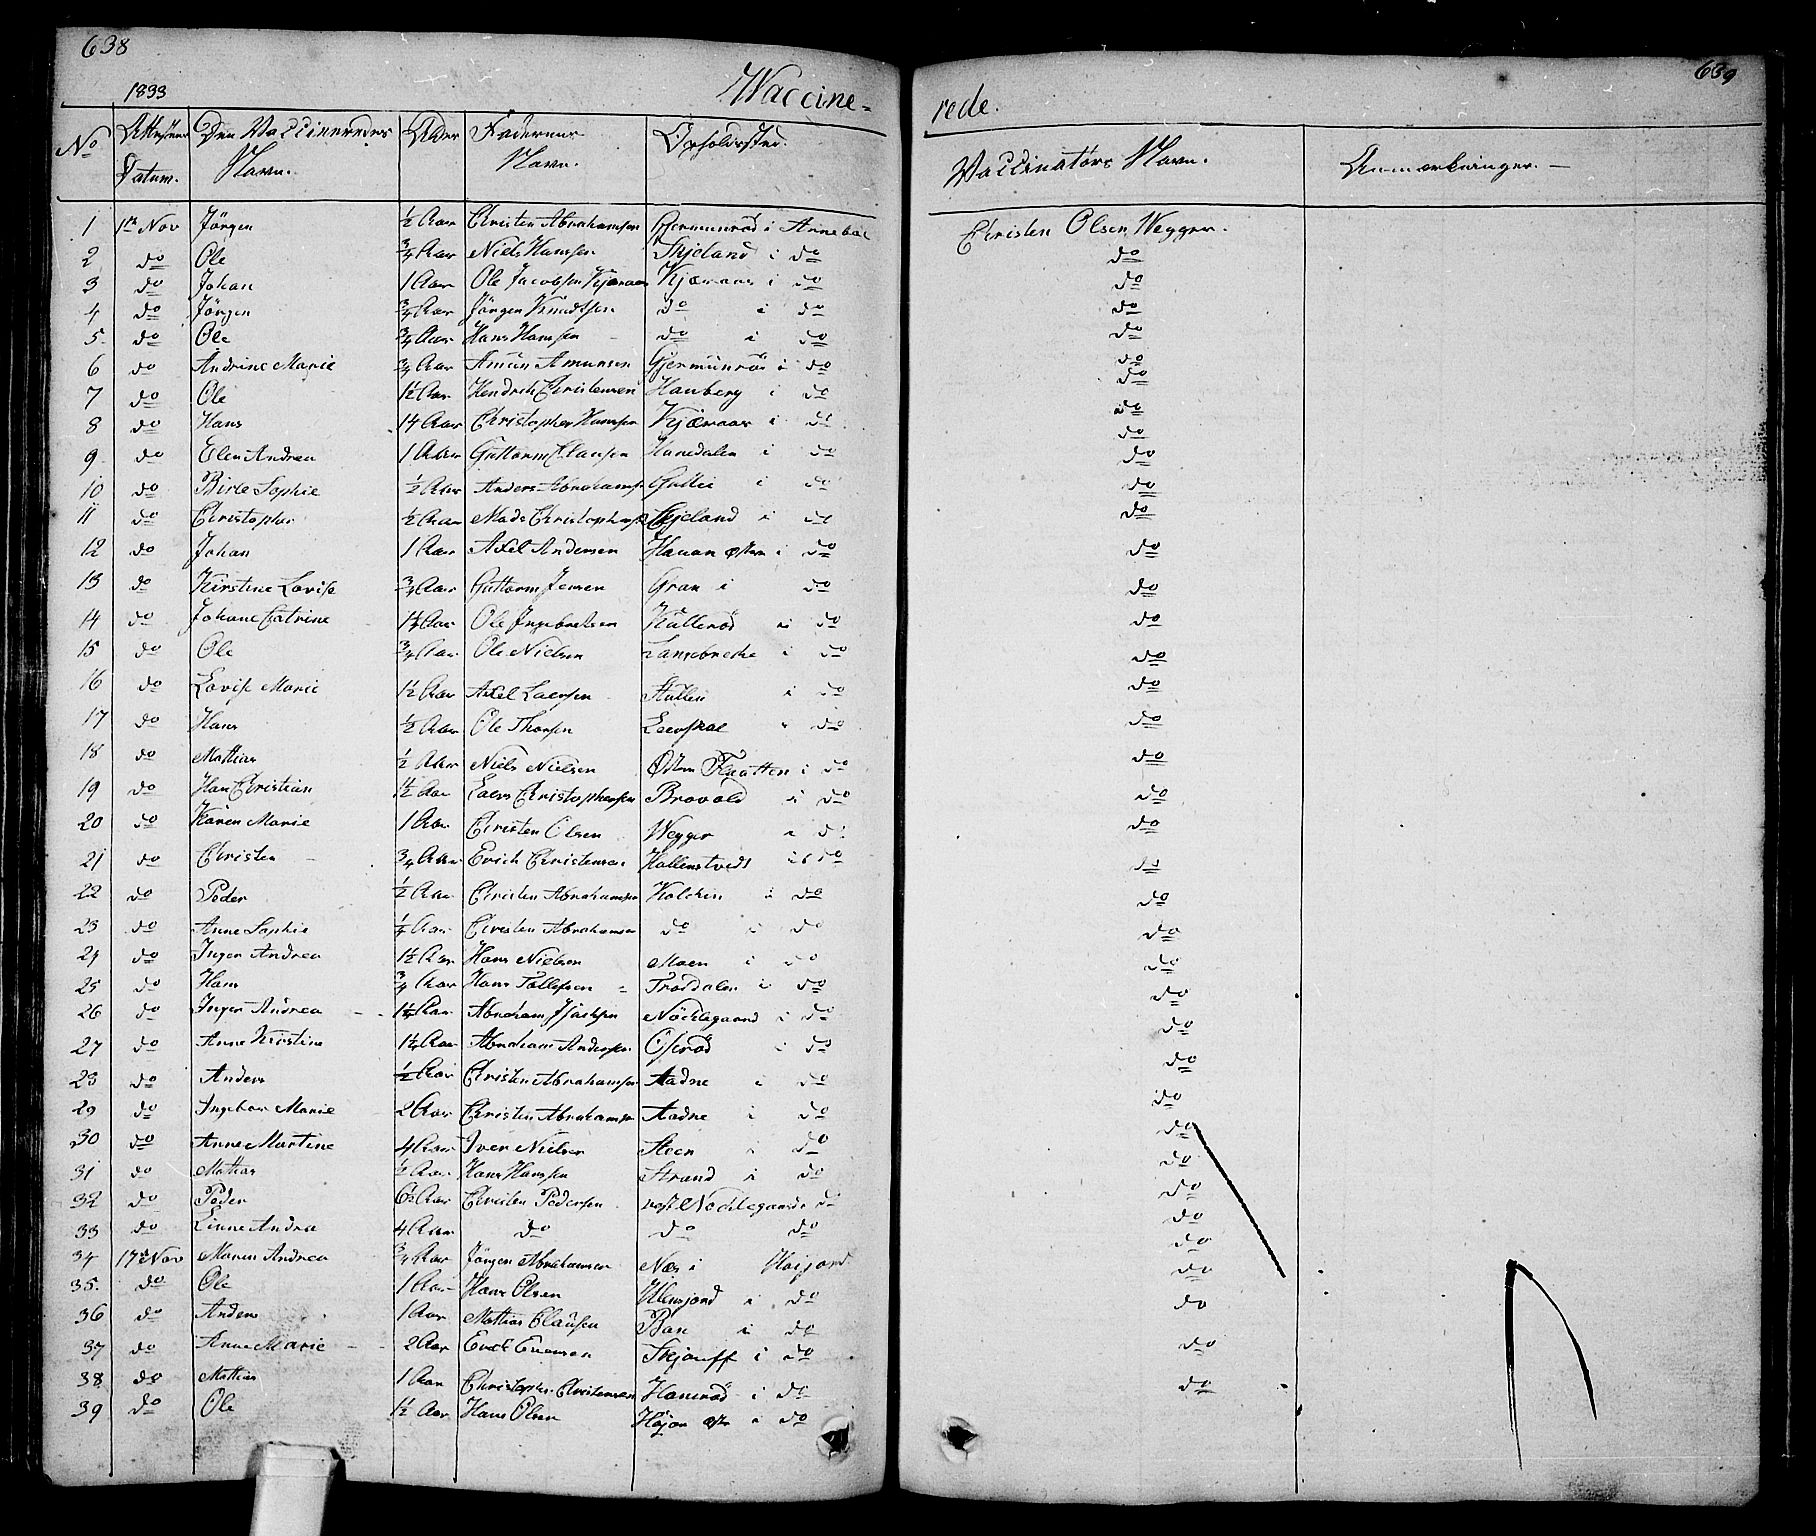 638
639
1833
Waccine-
rede.
No
Attesternes Datum.
Den Vaccineredes Navn.
Alder
Faderens Navn.
Opholdssted.
Vaccinatørs Navn.
Anmærkninger.
1 1ste Nov Jörgen ½ Aar Christen Abrahamsen Gjermunröd i Arnebal Christen Olsen Wegger.
2 do Ole ¾ Aar Niels Hansen Skjeland i do do
3 do Johan 1 Aar Ole Jacobsen Kjæraas Kjæraas i do do
4 do Jörgen ¾ Aar Jörgen Knudtsen do i do do
5. do Ole ¾ Aar Hans Hansen do i do do
6 do Andrine Marie ¾ Aar Amun Amunsen Gjermünröd i do do
7 do Ole 1½ Aar Hendrik Christensen Hauberg i do do
8 do Hans 14 Aar Christopher Hansen Kjæraas i do do
9. do Elen Andrea 1 Aar Guttorm Clausen Hanedalen i do do
10 do Birte Sophie ½ Aar Anders Abrahams i do do
11 do Christopher ½ Aar Mads Christophers Skjeland i do do
12 do Johan 1 Aar Axel Andersen Hauan østre i do do
13 do Kirstine Lovise ¾ Aar Guttorm Jensen Gran i do do
14 do Johane Catrine 1¼ Aar Ole Ingebretsen Kulleröd i do do
15 do Ole ¾ Aar Ole Nielsen Langebrekke i do do
16 do Lovise Marie 1½ Aar Axel Larsen i do do
17 do Hans ½ Aar Ole Thorsen i do do
18 do Mathias ½ Aar Niels Nielsen Østre Flaatten i do do
19 do Han Christian 1½ Aar Lars Christophersen Brovold i do do
20 do Karen Marie 1 Aar Christen Olsen Wegger i do do
21 do Christen ¾ Aar Erich Christensen Hallenstvedt i do do
22 do Peder ½ Aar Christen Abrahamsen i do do
23 do Anne Sophie ¼ Aar Christen Abrahamsen do i do do
24 do Inger Andrea 1½ Aar Hans Nielsen Moen i do do
25 do Hans ¾ Aar Hans Tollefsen Trollsdalen i do do
26 do Inger Andrea 1¼ Aar Abraham Isachsen Nöchlegaard i do do
27 do Anne Kirstine 1¼ Aar Abraham Andersen i do do
28 do Anders ½ Aar Christen Abrahamsen Aadne i do do
29 do Ingebor Marie 2 Aar Christen Abrahamsen Aadne i do do
30 do Anne Martine 4 Aar Iver Nielsen Steen i do do
31 do Mathias ½ Aar Hans Hanssen Strand i do do
32 do Peder 6½ Aar Christen Pedersen vest Nöchlegaard i do do
33 do Andrea 4 Aar do do do do
34 17de Nov Maren Andrea ¾ Aar Jörgen Abrahamsen Næs i Høijord do
35. do Ole 1 Aar Hans Olsen i do do
36 do Anders 1 Aar Mathias Clausen i do do
37 do Anne Marie 2 Aar Skjauff i do do
38. do Mathias 1 Aar Christopher Christensen Haneröd i do do
39 do Ole 1½ Aar Hans Olsen i do